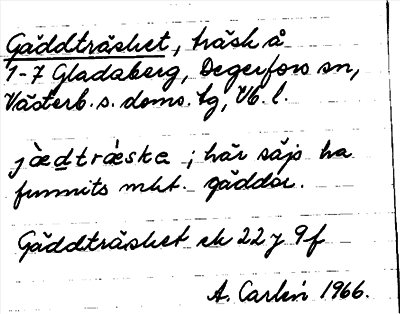 Gäddträsket, träsk å
1-7 Gladaberg, Degerfors sn,
Västerb. s. doms. tg, Vb. l.
jæ̀dtrǽske ; här säjs ha
funnits mkt. gäddor.
Gäddträsket ek 22 J 9f
A. Carlén 1966.